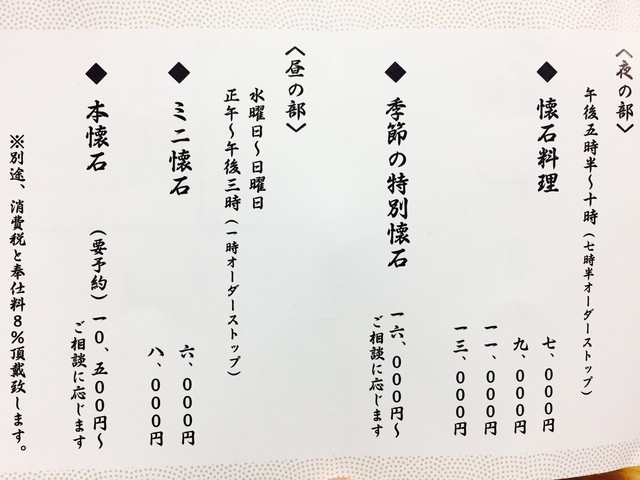 〈夜の部〉
午後五時半〜十時（七時半オーダーストップ）
◆ 懐石料理
七、000円
九、000円
一一、000円
一三、000円
◆ 季節の特別懐石
一六、000円〜
ご相談に応じます
〈昼の部〉
水曜日〜日曜日
正午〜午後三時（一時オーダーストップ）
◆ ミニ懐石
六、000円
八、000円
◆ 本懐石 （要予約）一0、五00円〜
ご相談に応じます
※別途、消費税と奉仕料8％頂戴致します。